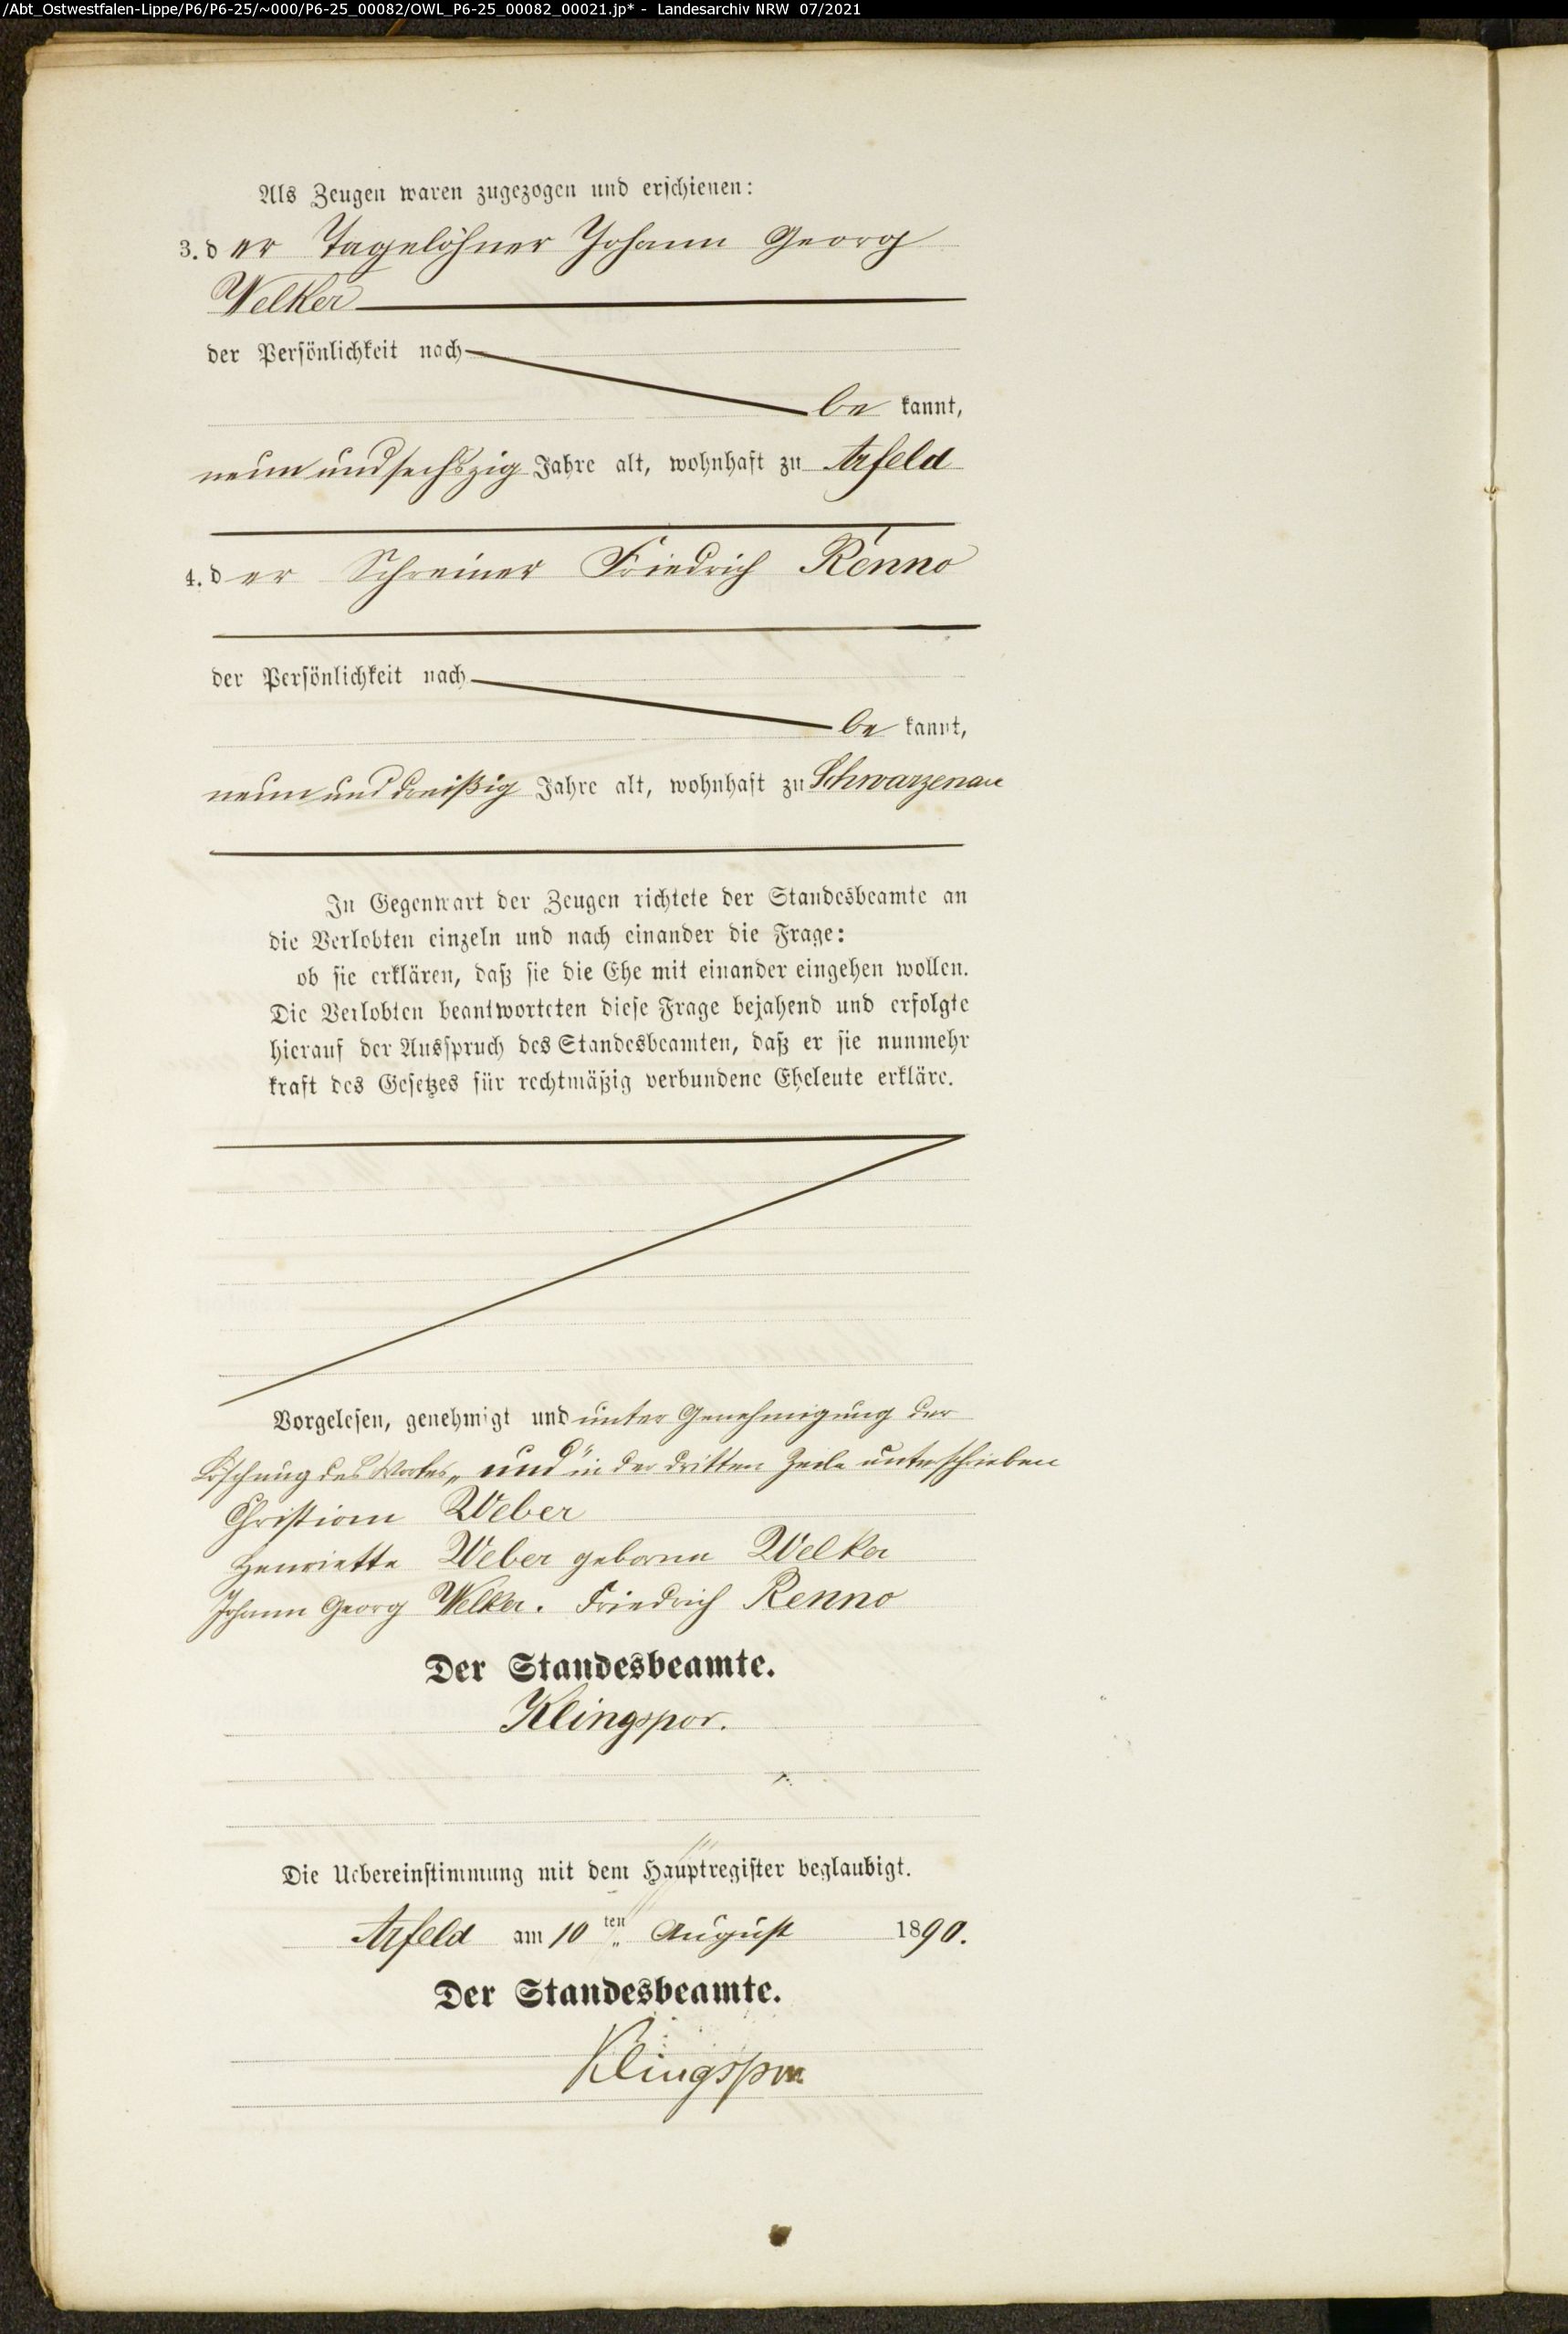 /Abt_Ostwestfalen-Lippe/P6/P6-25/~000/P6-25_00082/OWL_P6-25_00082_00021.jp* - Landesarchiv NRW 07/2021
Als Zeugen waren zugezogen und erschienen:
3. der Tagelöhner Johann Georg
Welker
der Persönlichkeit nach
be kannt,
neun und sechszig Jahre alt, wohnhaft zu Arfeld
4. der Schreiner Friedrich Renno
der Persönlichkeit nach
be kannt,
neun und dreißig Jahre alt, wohnhaft zu Schwarzenau
In Gegenwart der Zeugen richtete der Standesbeamte an
die Verlobten einzeln und nach einander die Frage:
ob sie erklären, daß sie die Ehe mit einander eingehen wollen.
Die Verlobten beantworteten diese Frage bejahend und erfolgte
hierauf der Ausspruch des Standesbeamten, daß er sie nunmehr
kraft des Gesetzes für rechtmäßig verbundene Eheleute erkläre.
Vorgelesen, genehmigt und unter Genehmigung der
Löschung des Wortes „und" in der dritten Zeile unterschrieben
Christian Weber
Henriette Weber geborne Welker
Johann Georg Welker. Friedrich Renno
Der Standesbeamte.
Klingspor.
Die Uebereinstimmung mit dem Hauptregister beglaubigt.
Arfeld am 10 ten August 1890.
Der Standesbeamte.
Klingspor